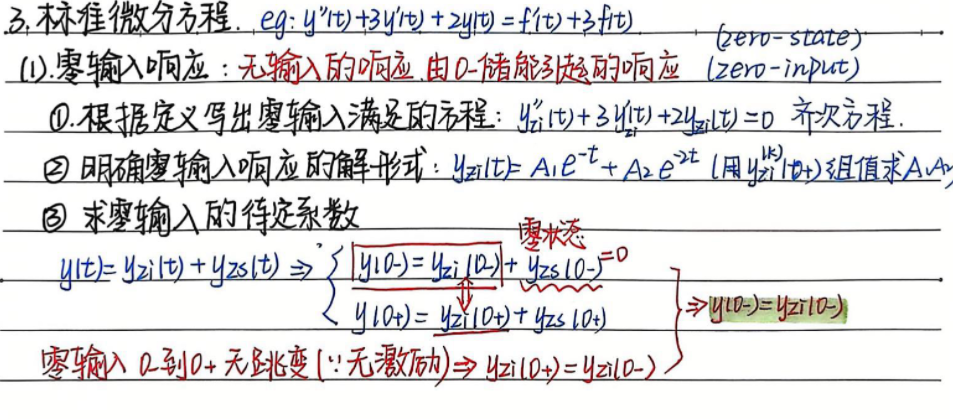 3. 标准微分方程. eg: y''(t)+3y'(t)+2y(t)=f'(t)+3f(t)
(zero-state)
(1).零输入响应:无输入的响应.由0-储能引起的响应 (zero-input)
①.根据定义写出零输入满足的方程: yzi''(t)+3yzi'(t)+2yzi(t)=0 齐次方程.
② 明确零输入响应的解形式: yzi(t)=A₁e^-t+A₂e^-2t (用yzi^(k)(0+)组值求A₁A₂)
③ 求零输入的待定系数
零状态
y(t)=yzi(t)+yzs(t) ⇒ { y(0-)=yzi(0-)+yzs(0-)=0
y(0+)=yzi(0+)+yzs(0+)
⇒y(0-)=yzi(0-)
零输入 0-到0+ 无跳变(∵无激励)⇒ yzi(0+)=yzi(0-)